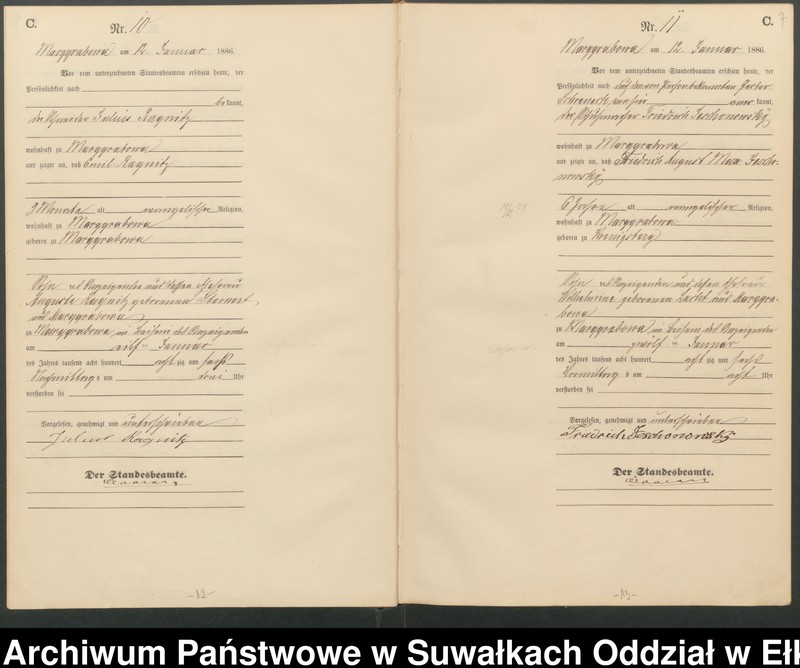 C.
Nr. 10
Marggrabowa am 12. Januar 1886.
Vor dem unterzeichneten Standesbeamten erschien heute, der
Persönlichkeit nach
bekannt,
der Schneider Julius Ragnitz
wohnhaft zu Marggrabowa
und zeigte an, daß Emil Ragnitz
3 Monate alt evangelischer Religion,
wohnhaft zu Marggrabowa
geboren zu Marggrabowa
Sohn des Anzeigenden und dessen Ehefrau
Auguste Ragnitz geborenen Steinert
aus Marggrabowa
zu Marggrabowa in Beisein des Anzeigenden
am elften Januar
des Jahres tausend acht hundert achtzig und sechs
Nachmittags um drei Uhr
verstorben sei
Vorgelesen, genehmigt und unterschrieben
Julius Ragnitz
Der Standesbeamte.
-12-
C. 7
Nr. 11
Marggrabowa am 12. Januar 1886.
Vor dem unterzeichneten Standesbeamten erschien heute, der
Persönlichkeit nach
von hier anerkannt,
der Schuhmacher Friedrich Jeschonowski
wohnhaft zu Marggrabowa
und zeigte an, daß Friedrich August Max Jescho-
nowski
6 Jahre alt evangelischer Religion,
wohnhaft zu Marggrabowa
geboren zu Koenigsberg
Sohn des Anzeigenden und dessen Ehefrau
Wilhelmine geborenen aus Marggra-
bowa
zu Marggrabowa in Beisein des Anzeigenden
am zwölften Januar
des Jahres tausend acht hundert achtzig und sechs
Vormittags um acht Uhr
verstorben sei
Vorgelesen, genehmigt und unterschrieben
Friedrich Jeschonowski
Der Standesbeamte.
-13-
Archiwum Państwowe w Suwałkach Oddział w Eł